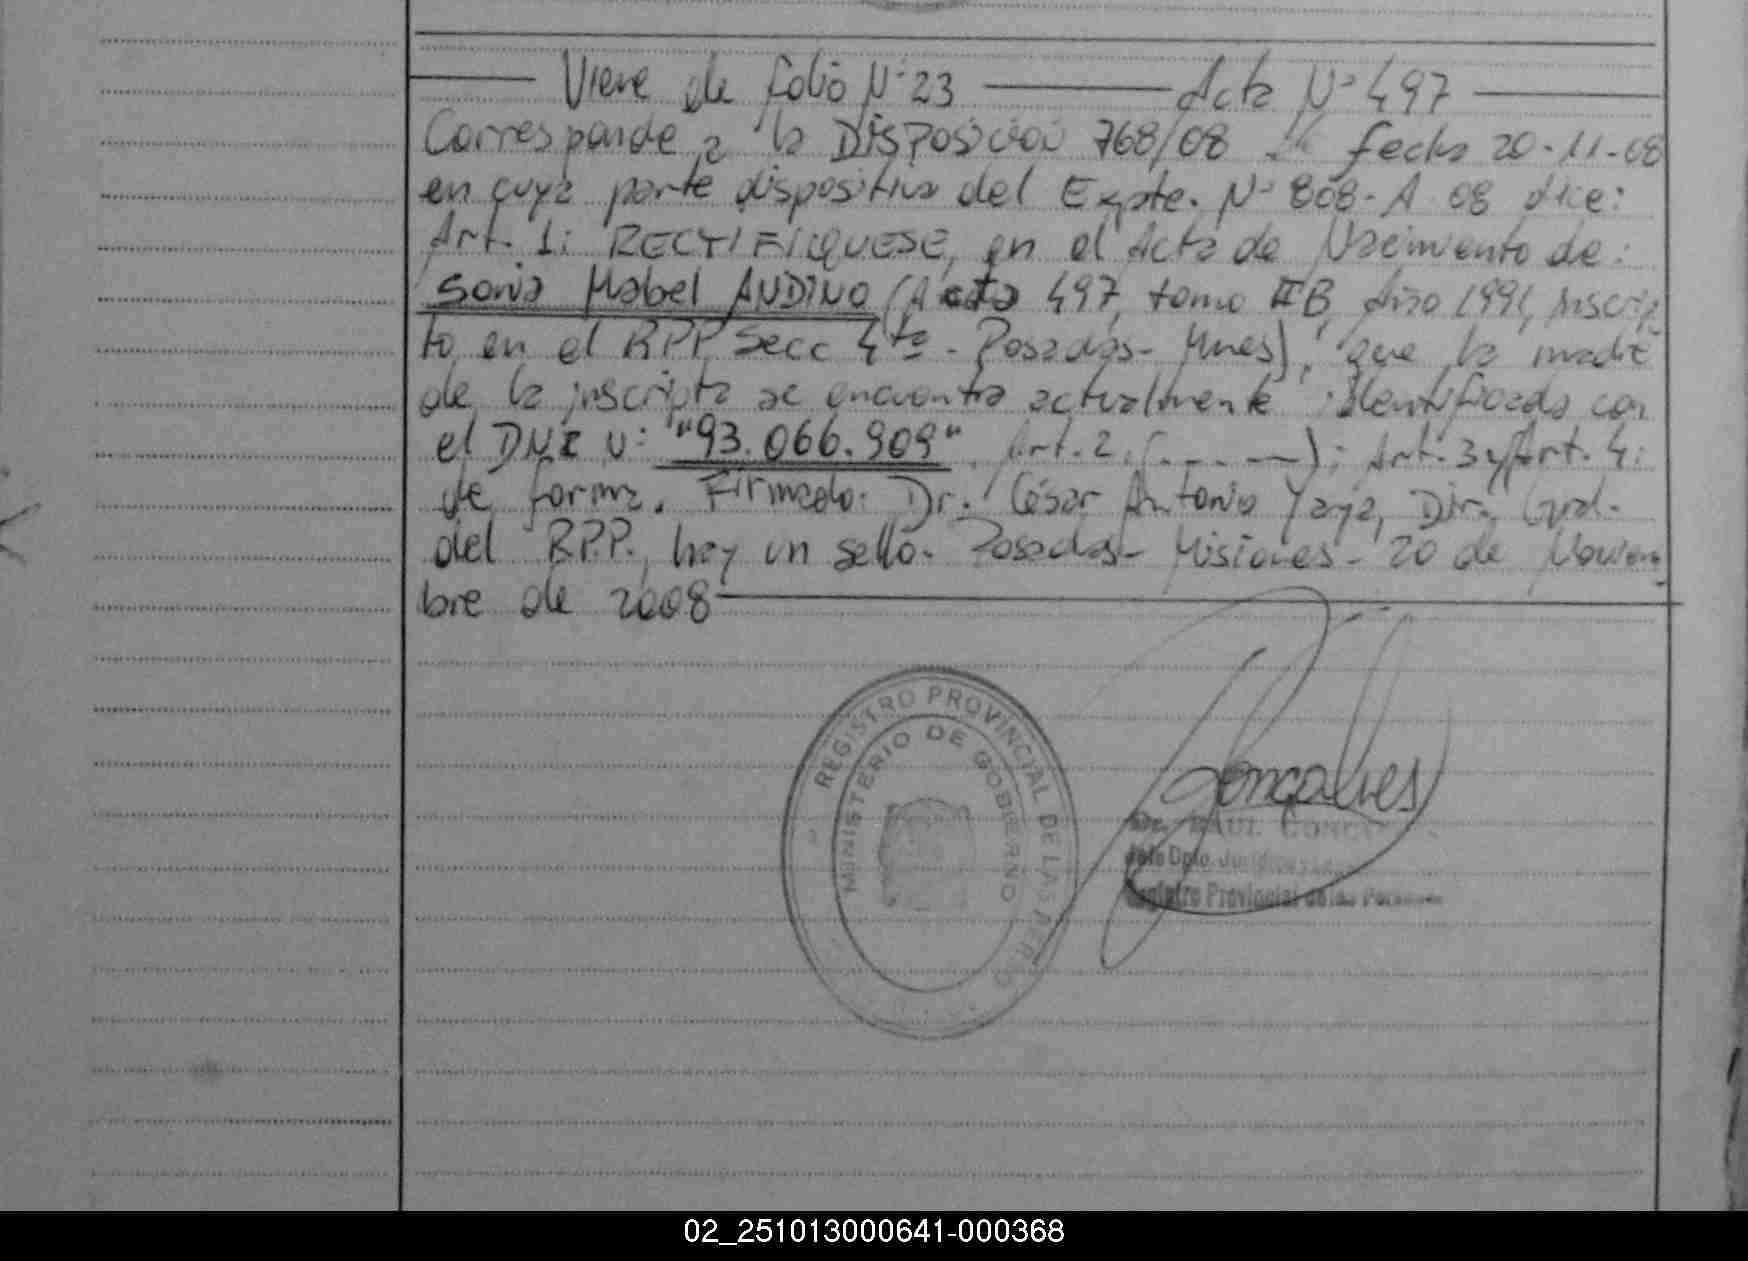 Viene de folio Nº 23 Acta Nº 497
Corresponde a la DISPOSICION 768/08 fecha 20-11-08
en cuya parte dispositiva del Expte. Nº 808-A 08 dice:
Art. 1: RECTIFIQUESE, en el Acta de Nacimiento de:
Sonia Mabel ANDINO (Acta 497, tomo IIB, Año 1991, inscrip
to en el RPP Secc 4ta - Posadas - Mnes), que la madre
de la inscripta se encuentra actualmente identificada con
el DNI N: "93.066.909" Art. 2. (... —); Art. 3 y Art. 4:
de forma. Firmado: Dr. César Antonio Yaya, Dir. Gral.
del R.P.P., hay un sello. Posadas - Misiones - 20 de Noviem-
bre de 2008
REGISTRO PROVINCIAL DE LAS PERSO
MINISTERIO DE GOBIERNO
Gonçalves
Dr. RAUL GONCA
Jefe Dpto. Jurídico
Registro Provincial de las Personas
02_251013000641-000368